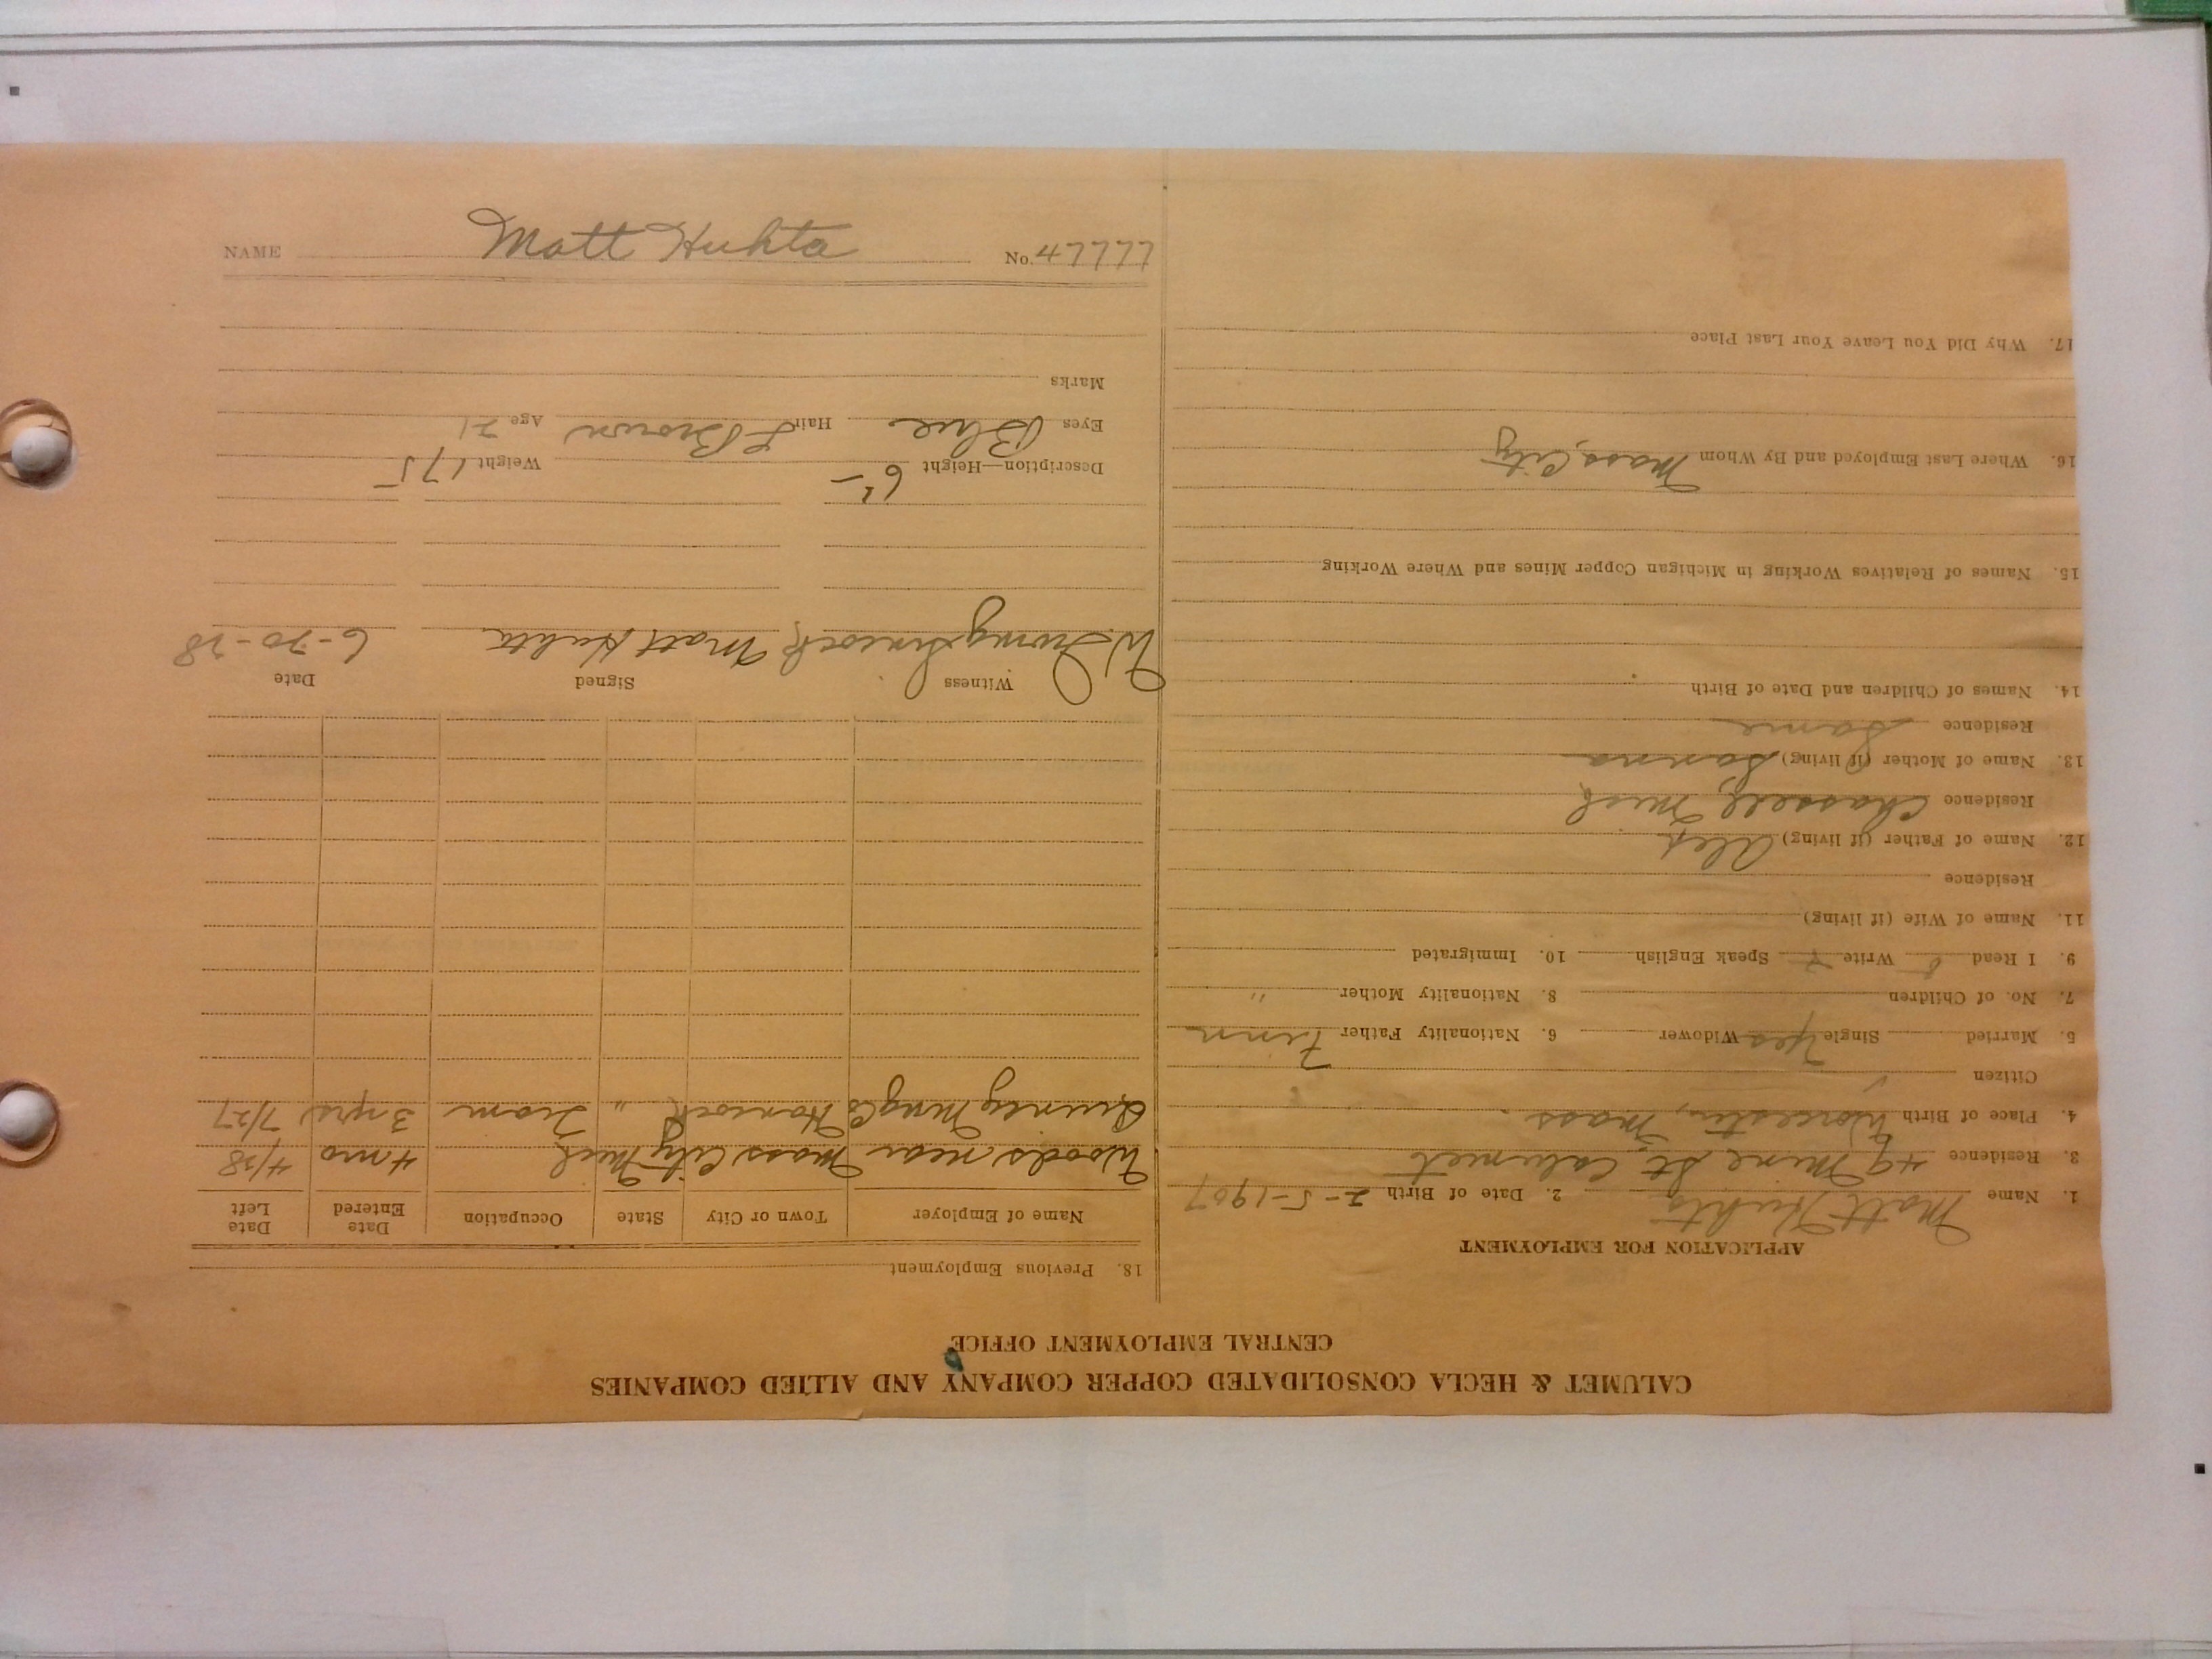 CALUMET & HECLA CONSOLIDATED COPPER COMPANY AND ALLIED COMPANIES
CENTRAL EMPLOYMENT OFFICE
APPLICATION FOR EMPLOYMENT
1. Name Matt Huhta 2. Date of Birth 2-5-1907
3. Residence 49 Mine St, Calumet
4. Place of Birth Worcester, Mass
Citizen
5. Married Single Yes Widower 6. Nationality Father Finn
7. No. of Children 8. Nationality Mother "
9. I Read Write Speak English 10. Immigrated
11. Name of Wife (if living)
Residence
12. Name of Father (if living) Alex
Residence Chassell, Mich
13. Name of Mother (if living) Sanna
Residence Same
14. Names of Children and Date of Birth
15. Names of Relatives Working in Michigan Copper Mines and Where Working
16. Where Last Employed and By Whom Mass City
17. Why Did You Leave Your Last Place
18. Previous Employment
Name of Employer Town or City State Occupation Date Entered Date Left
Woods near Mass City Mich 4 mo 4/28
Quincy Mng Co Hancock " Tram 3 yrs 7/27
Witness Signed Date
W. Matt Huhta 6-20-28
Description—Height 6 Weight 175
Eyes Blue Hair L Brown Age 21
Marks
NAME Matt Huhta No. 47777